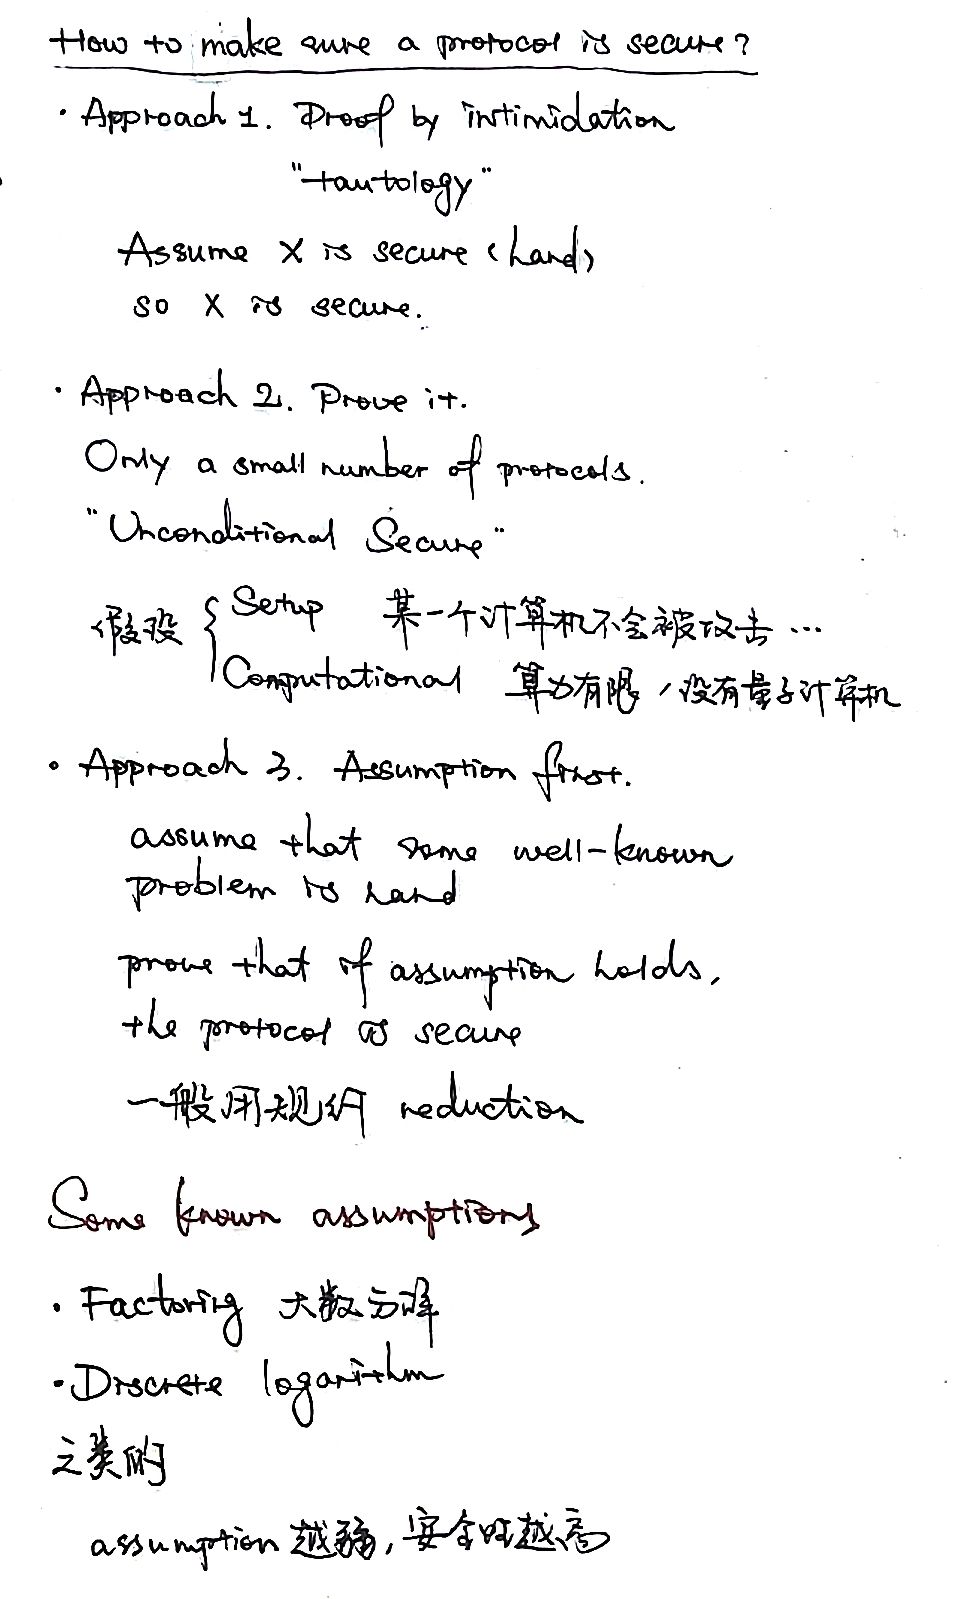 How to make sure a protocol is secure?
· Approach 1. Proof by intimidation
"tautology"
Assume X is secure (hard)
so X is secure.
· Approach 2. Prove it.
Only a small number of protocols.
"Unconditional Secure"
假设 { Setup 某一个计算机不会被攻击 ...
Computational 算力有限 / 没有量子计算机
· Approach 3. Assumption first.
assume that some well-known
problem is hard
prove that if assumption holds,
the protocol is secure
一般用规约 reduction
Some known assumptions
· Factoring 大数分解
· Discrete logarithm
之类的
assumption 越弱, 安全性越高